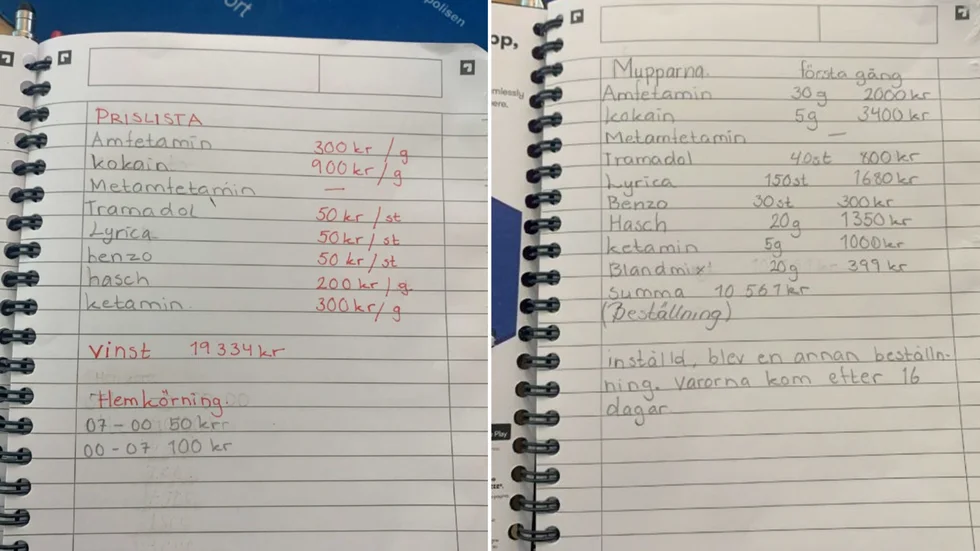 ort
polisen
PRISLISTA
Amfetamin 300 kr / g
kokain 900 kr / g
Metamfetamin —
Tramadol 50 kr / st
Lyrica 50 kr / st
benzo 50 kr / st
hasch 200 kr / g
ketamin 300 kr / g
vinst 19 334 kr
Hemkörning
07 - 00 50 kr
00 - 07 100 kr
pp,
mlessly
ere.
Play
Mupparna. första gång
Amfetamin 30 g 2000 kr
kokain 5g 3400 kr
Metamfetamin —
Tramadol 40st 800 kr
Lyrica 150st 1680 kr
Benzo 30 st 300 kr
Hasch 20g 1350 kr
ketamin 5g 1000 kr
Blandmix 20g 399 kr
summa 10 567 kr
(Beställning)
inställd, blev en annan beställn-
ning. Varorna kom efter 16
dagar